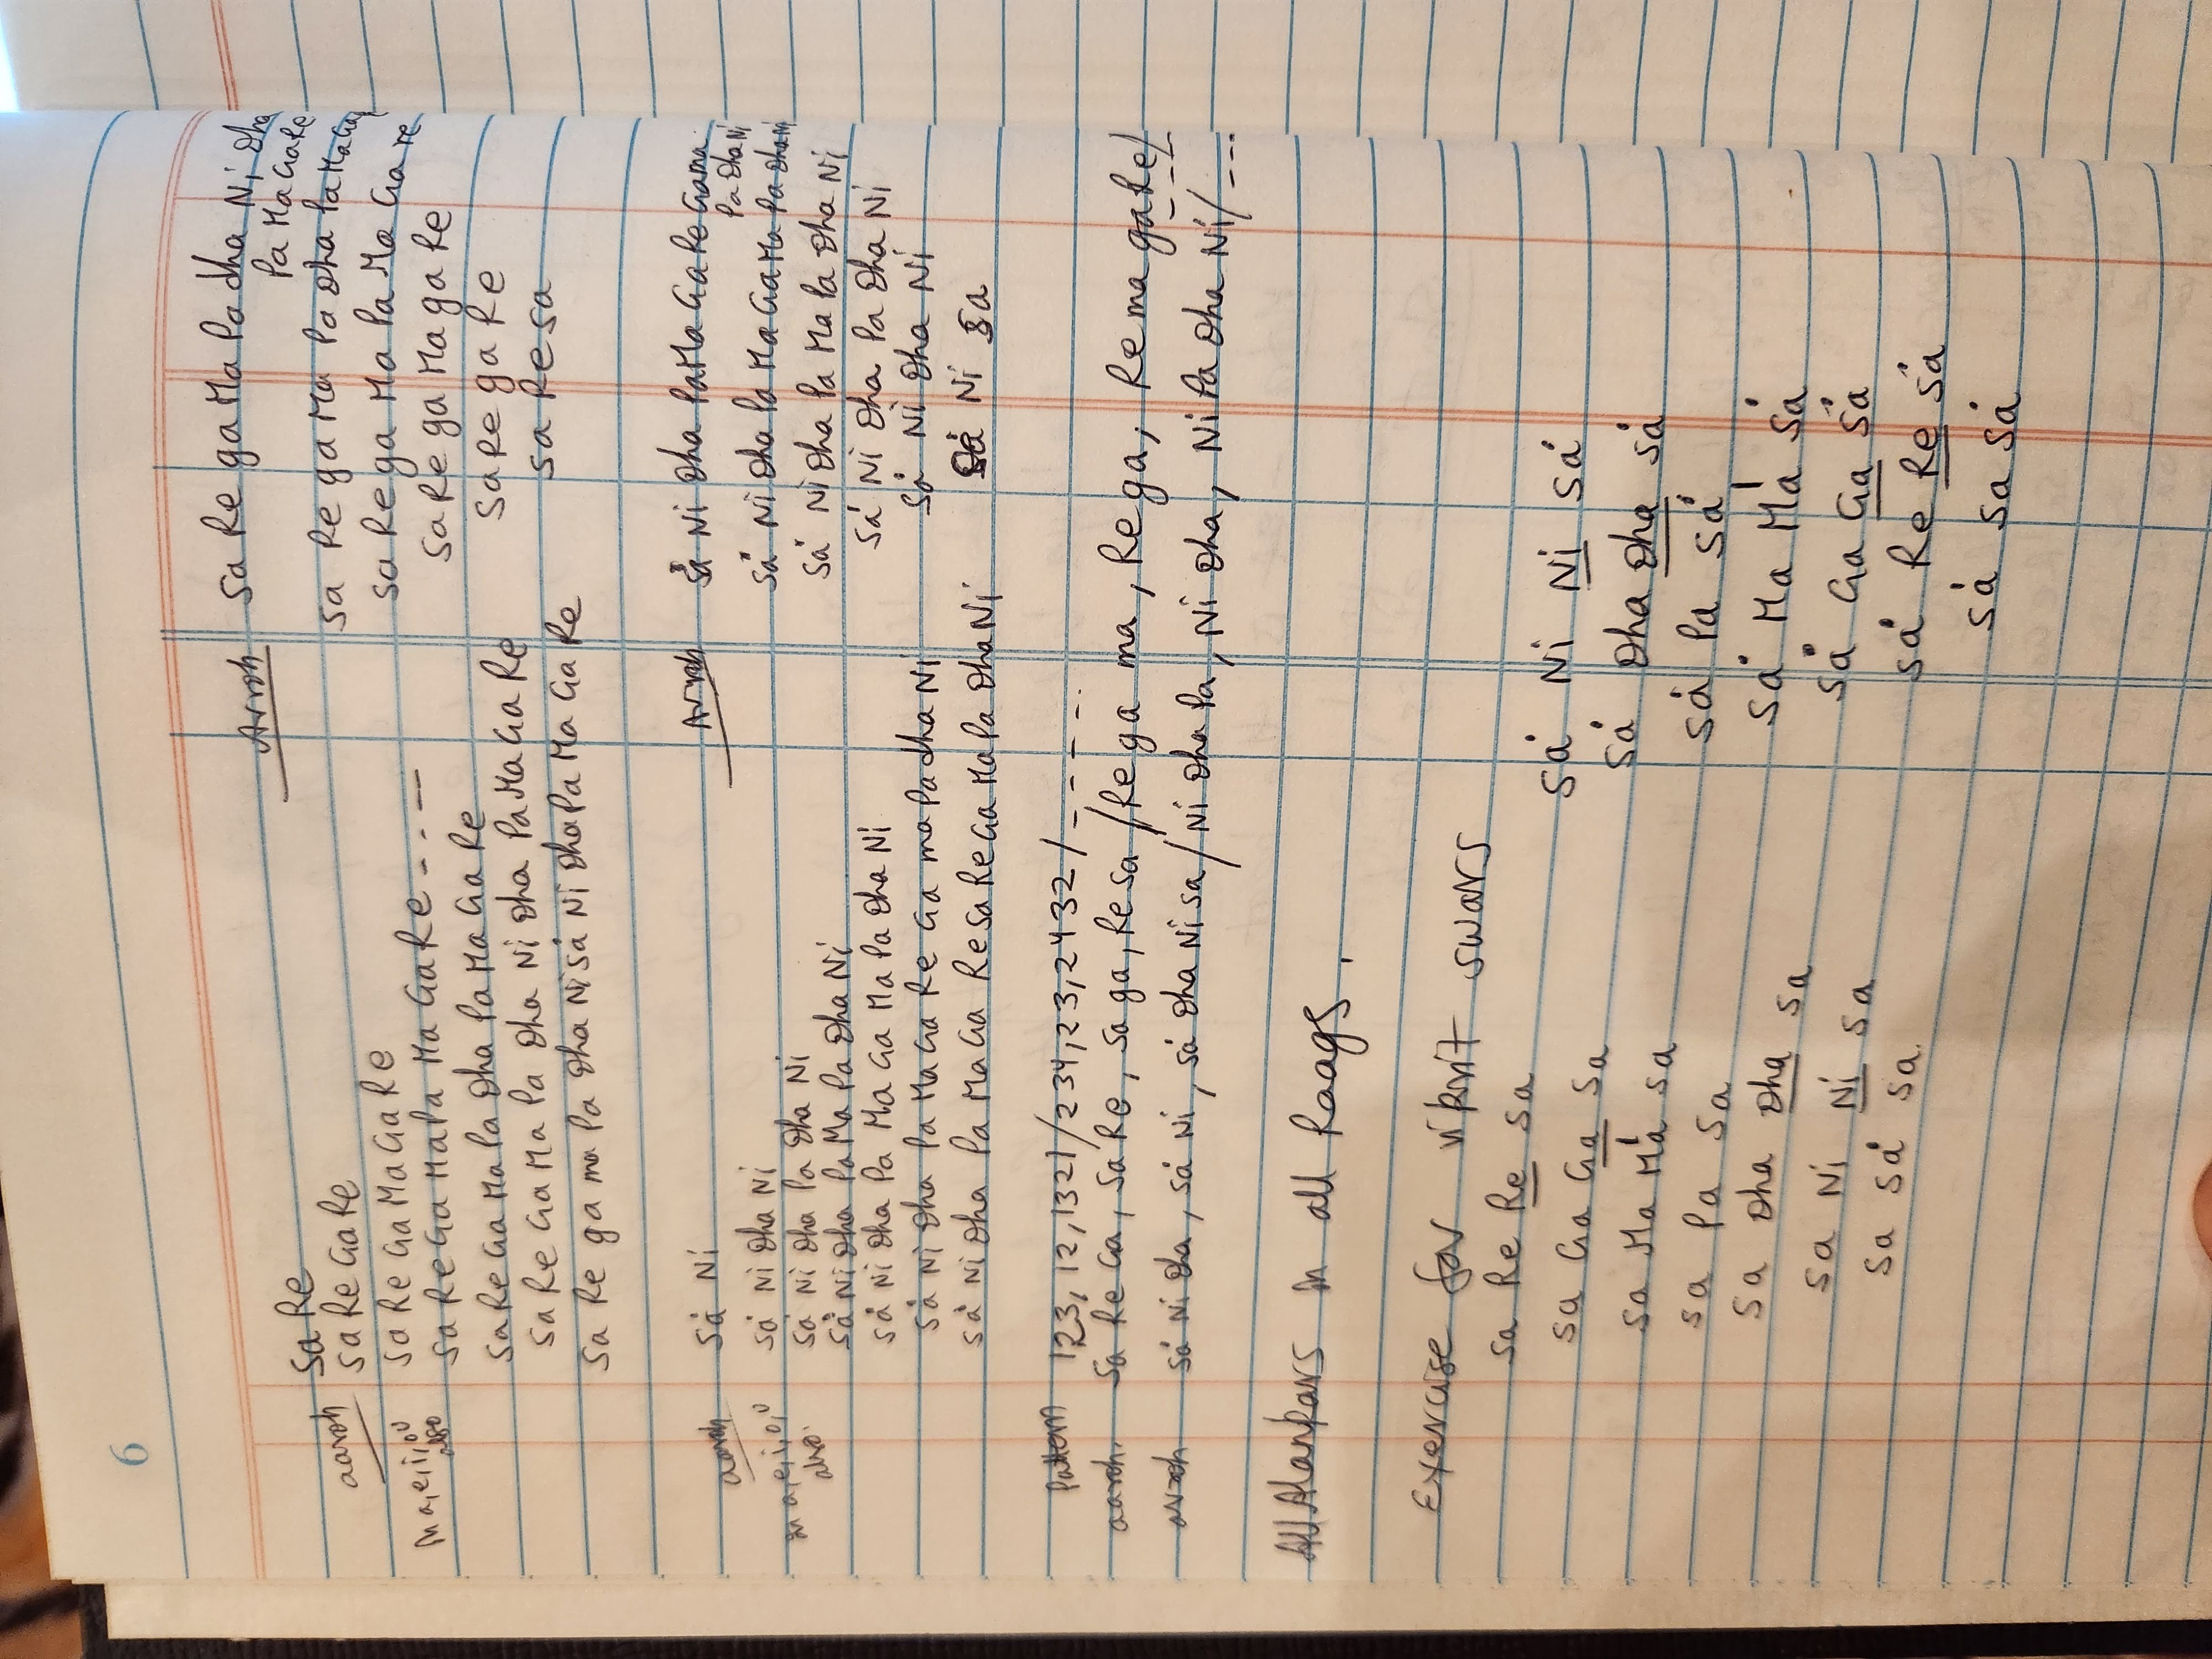 6
Arroh Sa Re ga Ma Pa dha Ni Dha
Pa Ma Ga Re
aaroh Sa Re
Sa Re Ga Re
Sa Re ga Ma Pa Dha Pa Ma Ga
Ma,e,i,o,u also Sa Re Ga Ma Ga Re
Sa Re ga Ma Pa Ma Ga re
Sa Re Ga Ma Pa Ma Ga Re - - - -
Sa Re ga Ma ga Re
Sa Re Ga Ma Pa Dha Pa Ma Ga Re
Sa Re ga Re
Sa Re Ga Ma Pa Dha Ni Dha Pa Ma Ga Re
Sa Re Sa
Sa Re ga ma Pa Dha Ni Sȧ Ni Dha Pa Ma Ga Re
aaroh Sȧ Ni
Arroh Sȧ Ni Dha Pa Ma Ga Re Ga ma
Pa Dha Ni
ma,e,i,o,u also. Sȧ Ni Dha Ni
Sȧ Ni Dha Pa Ma Ga Ma Pa Dha Ni
Sȧ Ni Dha Pa Dha Ni
Sȧ Ni Dha Pa Ma Pa Dha Ni
Sȧ Ni Dha Pa Ma Pa Dha Ni
Sȧ Ni Dha Pa Dha Ni
Sȧ Ni Dha Pa Ma Ga Ma Pa Dha Ni
Sȧ Ni Dha Ni
Sȧ Ni Dha Pa Ma Ga Re Ga ma Pa dha Ni
Ni Sa
Sȧ Ni Dha Pa Ma Ga Re Sa Re Ga Ma Pa Dha Ni
Pattern 123, 12, 1321/234, 23, 2432/- - - - - -
aaroh. Sa Re Ga, Sa Re, Sa ga, Re Sa/Re ga ma, Re ga, Re ma ga Re/- - -
arroh Sȧ Ni Dha, Sȧ Ni, Sȧ Dha Ni Sa/Ni Dha Pa, Ni Dha, Ni Pa Dha Ni/- - -
All Alankars in all Raags.
Exercise for vikrit swars
Sa Re R̲e̲ Sa
Sȧ Ni N̲i̲ Sȧ
Sa Ga G̲a̲ Sa
Sȧ Dha D̲h̲a̲ Sȧ
Sa Ma Ma̍ Sa
Sȧ Pa Sȧ
Sa Pa Sa
Sȧ Ma Ma̍ Sȧ
Sa Dha D̲h̲a̲ Sa
Sȧ Ga G̲a̲ Sȧ
Sa Ni N̲i̲ Sa
Sȧ Re R̲e̲ Sȧ
Sa Sȧ Sa.
Sȧ Sa Sȧ